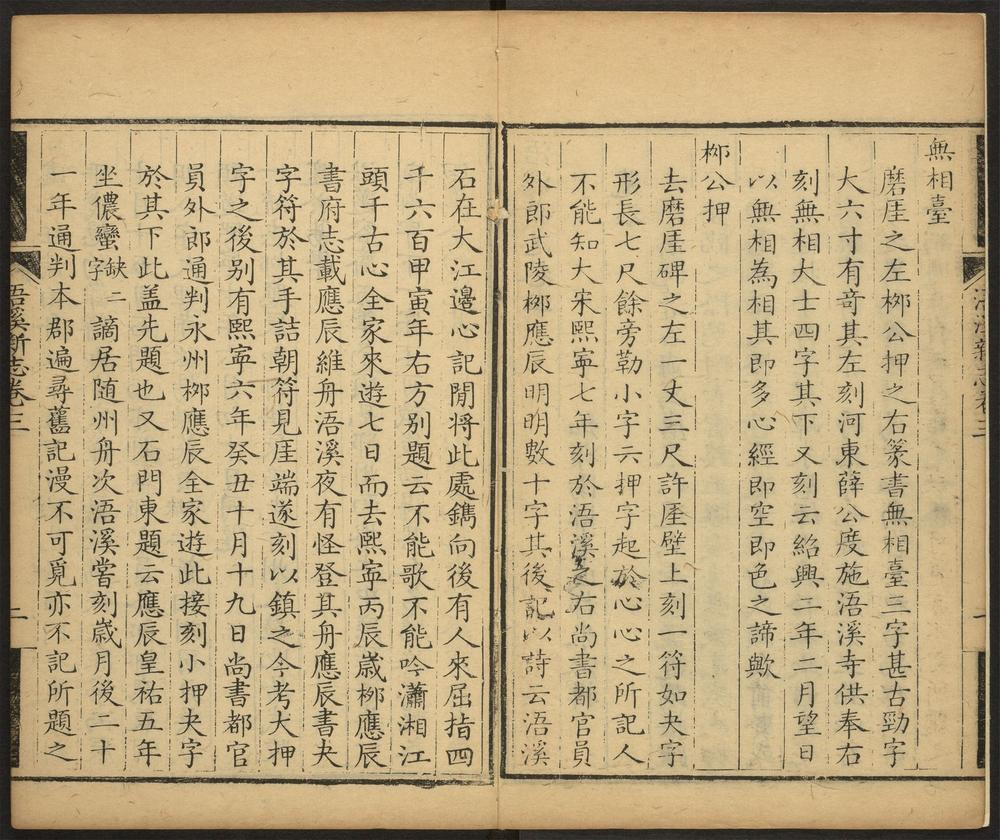 無相臺
磨厓之左栁公押之右篆書無相臺三字甚古勁字
大六寸有奇其左刻河東薛公度施浯溪寺供奉右
刻無相大士四字其下又刻云紹興二年二月望日
以無相為相其即多心經即空即色之諦歟
栁公押
去磨厓碑之左一丈三尺許厓壁上刻一符如夬字
形長七尺餘旁勒小字云押字起於心心之所記人
不能知大宋熙寧七年刻於浯溪之右尚書都官員
外郎武陵栁應辰明明數十字其後記以詩云浯溪
石在大江邊心記閒將此處鐫向後有人來屈指四
千六百甲寅年右方别題云不能歌不能吟瀟湘江
頭千古心全家來遊七日而去熙寧丙辰歳栁應辰
書府志載應辰維舟浯溪夜有怪登其舟應辰書夬
字符於其手詰朝符見厓端遂刻以鎮之今考大押
字之後别有熙寧六年癸丑十月十九日尚書都官
員外郎通判永州栁應辰全家遊此接刻小押夬字
於其下此盖先題也又石門東題云應辰皇祐五年
坐儂蠻缺二字謫居随州舟次浯溪嘗刻歳月後二十
一年通判本郡遍尋舊記漫不可覓亦不記所題之
浯溪新志卷三
一
浯溪新志卷三
二